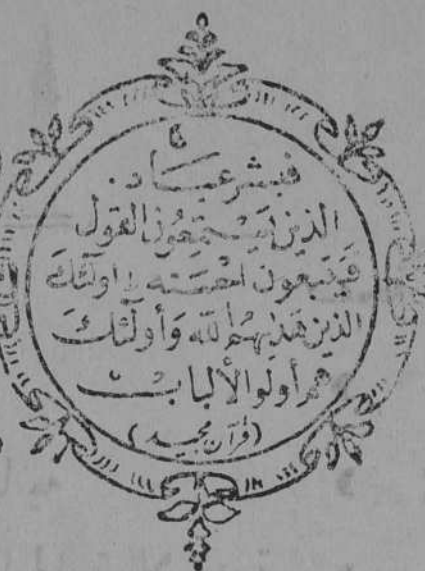 فبشر عباد.
الذين يستمعون القول
فيتبعون احسنه اولئك
الذين هدیهم الله وأولئك
هم أولو الألباب
(قرآن مجید)